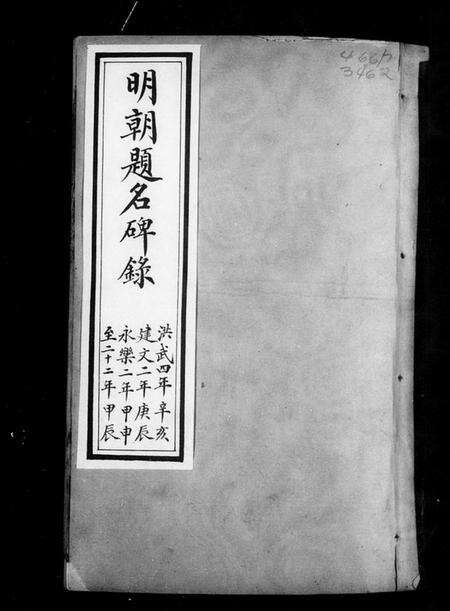 明朝題名碑錄
洪武四年辛亥
建文二年庚辰
永樂二年甲申
至二十二年甲辰
3462